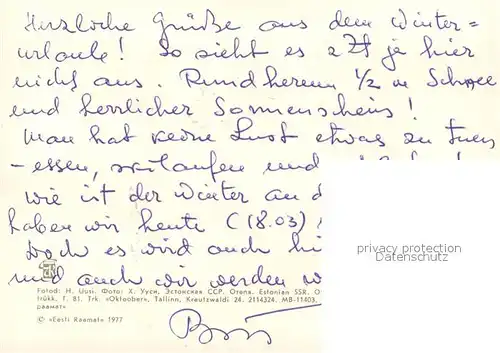 Herzliche Grüße aus dem Winter=
urlaub! So sieht es zZt je hier
nicht aus. Rundherum 1/2 m Schnee
und herrlicher Sonnenschein!
Man hat keine Lust etwas zu tuen
-essen, skilaufen und
Wie ist der Winter an d
haben wir heute (18.03)
Doch es wird auch hi
und auch wir werden w
privacy protection
Datenschutz
Fotod: H. Uusi. Фото: Х. Ууси, Эстонская ССР. Отепя. Estonian SSR. O
trükk, f. 81. Trk. «Oktoober», Tallinn, Kreutzwaldi 24. 2114324. MB-11403.
© «Eesti Raamat» 1977